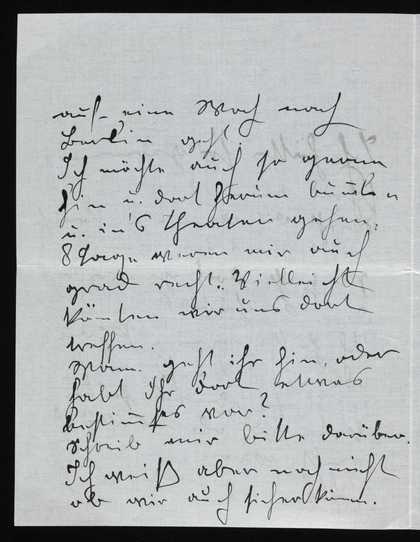 auf eine Woch nach
Berlin geht.
Ich möchte auch so gerne
hin u. dort herum bum̅eln
u. in's Theater gehen.
8 Tage wären mir auch
grad recht. Vielleicht
könten wir uns dort
treffen.
Wann geht ihr hin, oder
habt Ihr dort etwas
bestim̅tes vor?
Schreib mir bitte darüber.
Ich weiß aber noch nicht
ob wir auch sicher kom̅en.